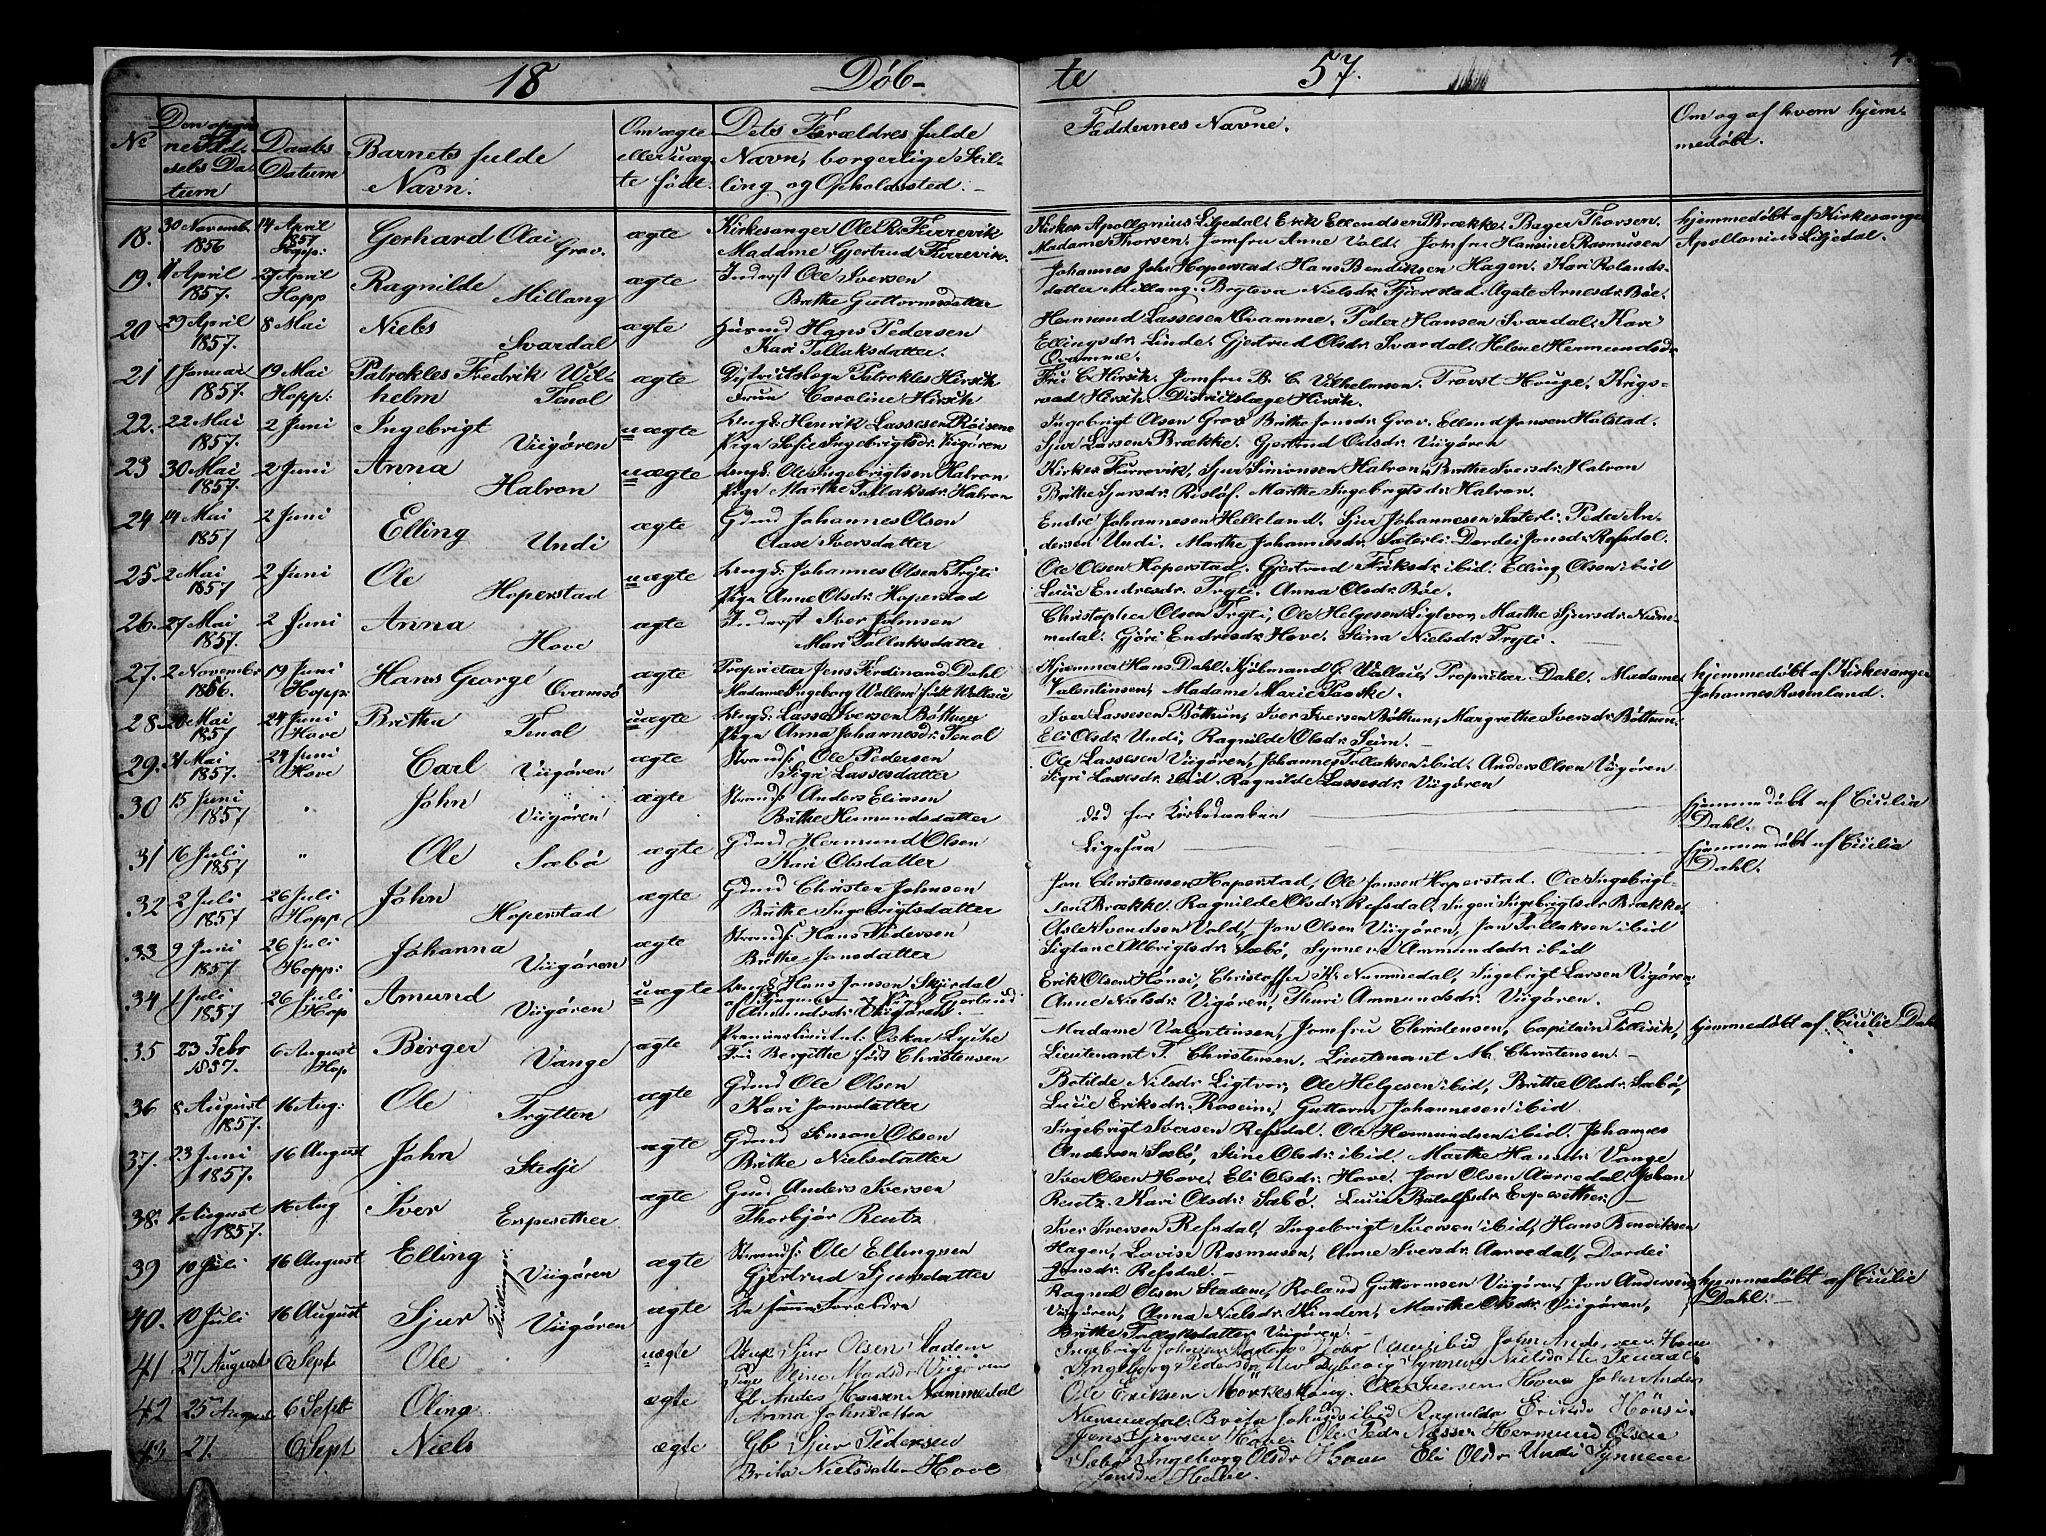 18 Döb-
te 57.
No
Den opgivne Födselsdatum
Daabs Datum
Barnets fulde Navn.
Om ægte eller uægte födt.
Dets Forældres fulde Navn, borgerlige Stilling og Opholdssted.
Faddernes Navne.
Om og af hvem hjemmedöbt.
18. 30 Novemb. 1856 14 April 1857 Gerhard Olai Grav. ægte Kirkesanger Ole R. Furrevik
Madame Gjertrud Furrevik.
Kirkes. Apollonius Liljedal. Erik Ellendsen Brække. Bager Thorsen.
Madame Thorsen. Jomfru Anne Vold. Jomfru Hansine Rasmusen
hjemmedöbt af Kirkesanger
Apollonius Liljedal.
19. April 1857. 27 April Hopp Ragnilde Millang ægte Inderst Ole Iversen
Brithe Guttormsdatter
Johannes John Hoperstad. Hans Bendiksen Hagen. Kari Rolands-
datter Millang. Bryteva Nielsdr. Fjærestad. Agate Arnesdr. Böe.
20 29 April 1857. 8 Mai Niels Svardal ægte Husmd Hans Pedersen
Kari Tollaksdatter.
Hermund Lassesen Qvamme. Peder Hansen Svardal. Kari
Ellingsdr. Linde. Gjertrud Olsdr. Svardal. Helene Hermundsdr.
Qvamme.
21 1 Januar 1857. 19 Mai Hopp: Patrokles Fredrik Wil-
helm Tenol ægte Districtslæge Patrokles Hirsch
Fruen Caroline Hirsch
Fru C. Hirsch. Jomfru B. C. Vilhelmsen. Provst Houge. Krigs-
raad Hirsch. Districtslæge Hirsch.
22. 22 Mai 1857. 2 Juni Ingebrigt Viigören uægte Ungk: Henrik Lassesen Röisene
Pige Sofie Ingebrigtsdr. Viigören
Ingebrigt Olsen Grov. Brithe Jonsdr. Grov. Ellend Jonsen Halstad.
Sjur Larsen Brække. Gjertrud Olsdr. Viigören
23 30 Mai 1857. 2 Juni Anna Halron uægte Ungk: Ole Ingebrigtsen Halron
Pige Marthe Tollaksdr. Halron
Kirkes. Furrevik, Sjur Simonsen Halron, Brithe Iversdr. Halron
Brithe Sjursdr. Rislöf. Marthe Ingebrigtsdr. Halron.
24 14 Mai 1857 2 Juni Elling Undi ægte Gmd Johannes Olsen
Aase Iversdatter
Endre Johannesen Helleland. Sjur Johannesen Sæterli. Peder An-
dersen Undi. Marthe Johannesdr. Sæterli. Dordei Jonsdr. Refsdal.
25 2 Mai 1857 2 Juni Ole Hoperstad uægte Ungk: Johannes Olsen Tryti
Pige Anne Olsdr. Hoperstad
Ole Olsen Hoperstad. Gjertrud Eriksdr. ibid. Elling Olsen ibid
Lucie Endresdr. Tryti. Anna Olsdr. Böe.
26. 27 Mai 1857. 2 Juni Anna Hove ægte Inderst Iver Johnsen
Mari Tollaksdatter
Christopher Olsen Tryti, Ole Helgesen Ligtvor, Marthe Sjursdr. Num-
medal. Gjöri Endresdr. Hove. Stina Nielsdr. Tryti. -
27. 2 Novembr 1856. 19 Juni Hopp: Hans George Qvamsö ægte Proprietær Jens Ferdinand Dahl
Madame Ingeborg Willem. födt Wallace
Kjemner Hans Dahl. Kjöbmand G. Wallace, Proprietær Dahl. Madame
Valentinsen, Madame Marie Paaske.
hjemmedöbt af Kirkesanger
Johannes Rosenland.
28 20 Mai 1857 24 Juni Hove Britha Tenol uægte Ungk: Lasse Iversen Böthun
Pige Anna Johannesdr. Tenol
Iver Lassesen Böthun, Iver Iversen Böthun, Margrethe Iversdr. Böthun.
Eli Olsdr. Undi, Ragnilde Olsdr. Seim. -
29. 21 Mai 1857. 24 Juni Hove Carl Viigören ægte Strands: Ole Pedersen
Sigri Lassesdatter
Ole Lassesen Viigören, Johannes Tollaksen ibid. Anders Olsen Viigören
Sigri Lassesdr. ibid. Ragnilde Lassesdr. Viigören
30 15 Juni 1857 " John Viigören ægte Strands: Anders Eliasen
Brithe Hermundsdatter
död for Kirkedaaben
hjemmedöbt af Cicilia
Dahl.
31 16 Juli 1857 " Ole Sæbö ægte Gmd Hermund Olsen
Kari Olsdatter
Ligesaa
hjemmedöbt af Cicilia
Dahl.
32 2 Juli 1857 26 Juli Hopp. John Hoperstad ægte Gmd Christen Johnsen
Brithe Ingebrigtsdatter
Jon Christensen Hoperstad, Ole Jonsen Hoperstad. Ole Ingebrigt-
sen Brække. Ragnilde Olsdr. Refsdal, Inger Ingebrigtsdr Brække.
33 9 Juni 1857 26 Juli Hopp: Johanna Viigören ægte Strands: Hans Pedersen
Brithe Jonsdatter
Asle Svendsen Vold, Jon Olsen Viigören, Jon Tollaksen ibid
Albrigtsdr. Sæbö, Synneva Ammundsdr. ibid
34 1 Juli 1857 26 Juli Hop Amund Viigören uægte Ungk Hans Jonson Skjerdal
Pige Gjertrud
Amundsdr. Viigören. -
Erik Olsen Hönsi, Christoffer K. Nummedal, Ingebrigt Larsen Vigören
Anne Nielsdr. Vigören, Thuri Ammundsdr. Viigören.
35 23 Febr 1857. 6 August Hop Birger Vange ægte Premierlieutnt. Oskar Lyche
Fru Bergithe födt Christensen
Madame Valentinsen, Jomfru Christensen, Capitain Tillisch,
Lieutenant F. Christensen. Lieutenant M. Christensen. -
hjemmedöbt af Cicilie Dahl
36 8 August 1857. 16 Aug: Ole Trytten ægte Gmd Ole Olsen
Kari Jonsdatter
Botilde Nilsdr. Ligtvor, Ole Helgesen ibid, Brithe Olsdr. Sæbö,
Lucie Eriksdr. Roseim, Guttorm Johannesen ibid
37. 23 Juni 1857. 16 August John Stedje ægte Gmd Simon Olsen
Brithe Nielsdatter
Ingebrigt Iversen Refsdal. Ole Hermundsen ibid. Johannes
Andersen Sæbö, Stine Olsdr. ibid. Marthe Hansdr. Vange
38. 1 August 1857. 16 Aug Iver Espesether ægte Gmd Anders Iversen
Thorbjör Rentz
Iver Olsen Hove, Eli Olsdr. Hove. Jon Olsen Aarvedal, Johan
Rentz. Kari Olsdr. Sæbö. Lucie Botolfsdr. Espesether. -
39 10 Juli 16 August Elling Viigören ægte Strands: Ole Ellingsen
Gjertrud Sjursdatter
Iver Iversen Refsdal, Ingebrigt Iversen ibid, Hans Bendiksen
Hagen, Lovise Rasmusen, Anne Iversdr. Aarvedal, Dordei
Jonsdr. Refsdal. -
Tvillinger.
40. 10 Juli 16 August Sjur Viigören ægte De samme Forældre
Ragnal Olsen Stadem, Roland Guttormsen Viigören, Jon Andersen
Viigören, Anna Nielsdr. Hinden, Marthe Olsdr. Viigören,
Brithe Tollaksdatter Viigören. -
hjemmedöbt af Cicilie
Dahl. -
41 27 August 6 Sept Ole uægte Ungk Sjur Olsen Stadem
Pige Stine Madsdr Viigören
Ingebrigt ibid John Andersen Hove
Ingeborg Pedersdr Synneve Nielsdatter Tenaal
42 25 August 6 Sept Oline ægte Gb Andes Hansen Nummedal
Anna Johnsdatter
Ole Eriksen Mörkeskoug. Ole Iversen Hove John Andes
Nummedal. Brita Johnsdr ibid Ragnilda Eriksdr Hönsi.
43 27. 6 Sept Niels ægte Gb Sjur Pedersen
Brita Nielsdatter Hove
Jens Sjursen Hove Ole Peds. Næsse Hermund Olsen
Sæbö Ingeborg Olsdr Hove Eli Olsdr Undi Synneve
Jensdr Hove.